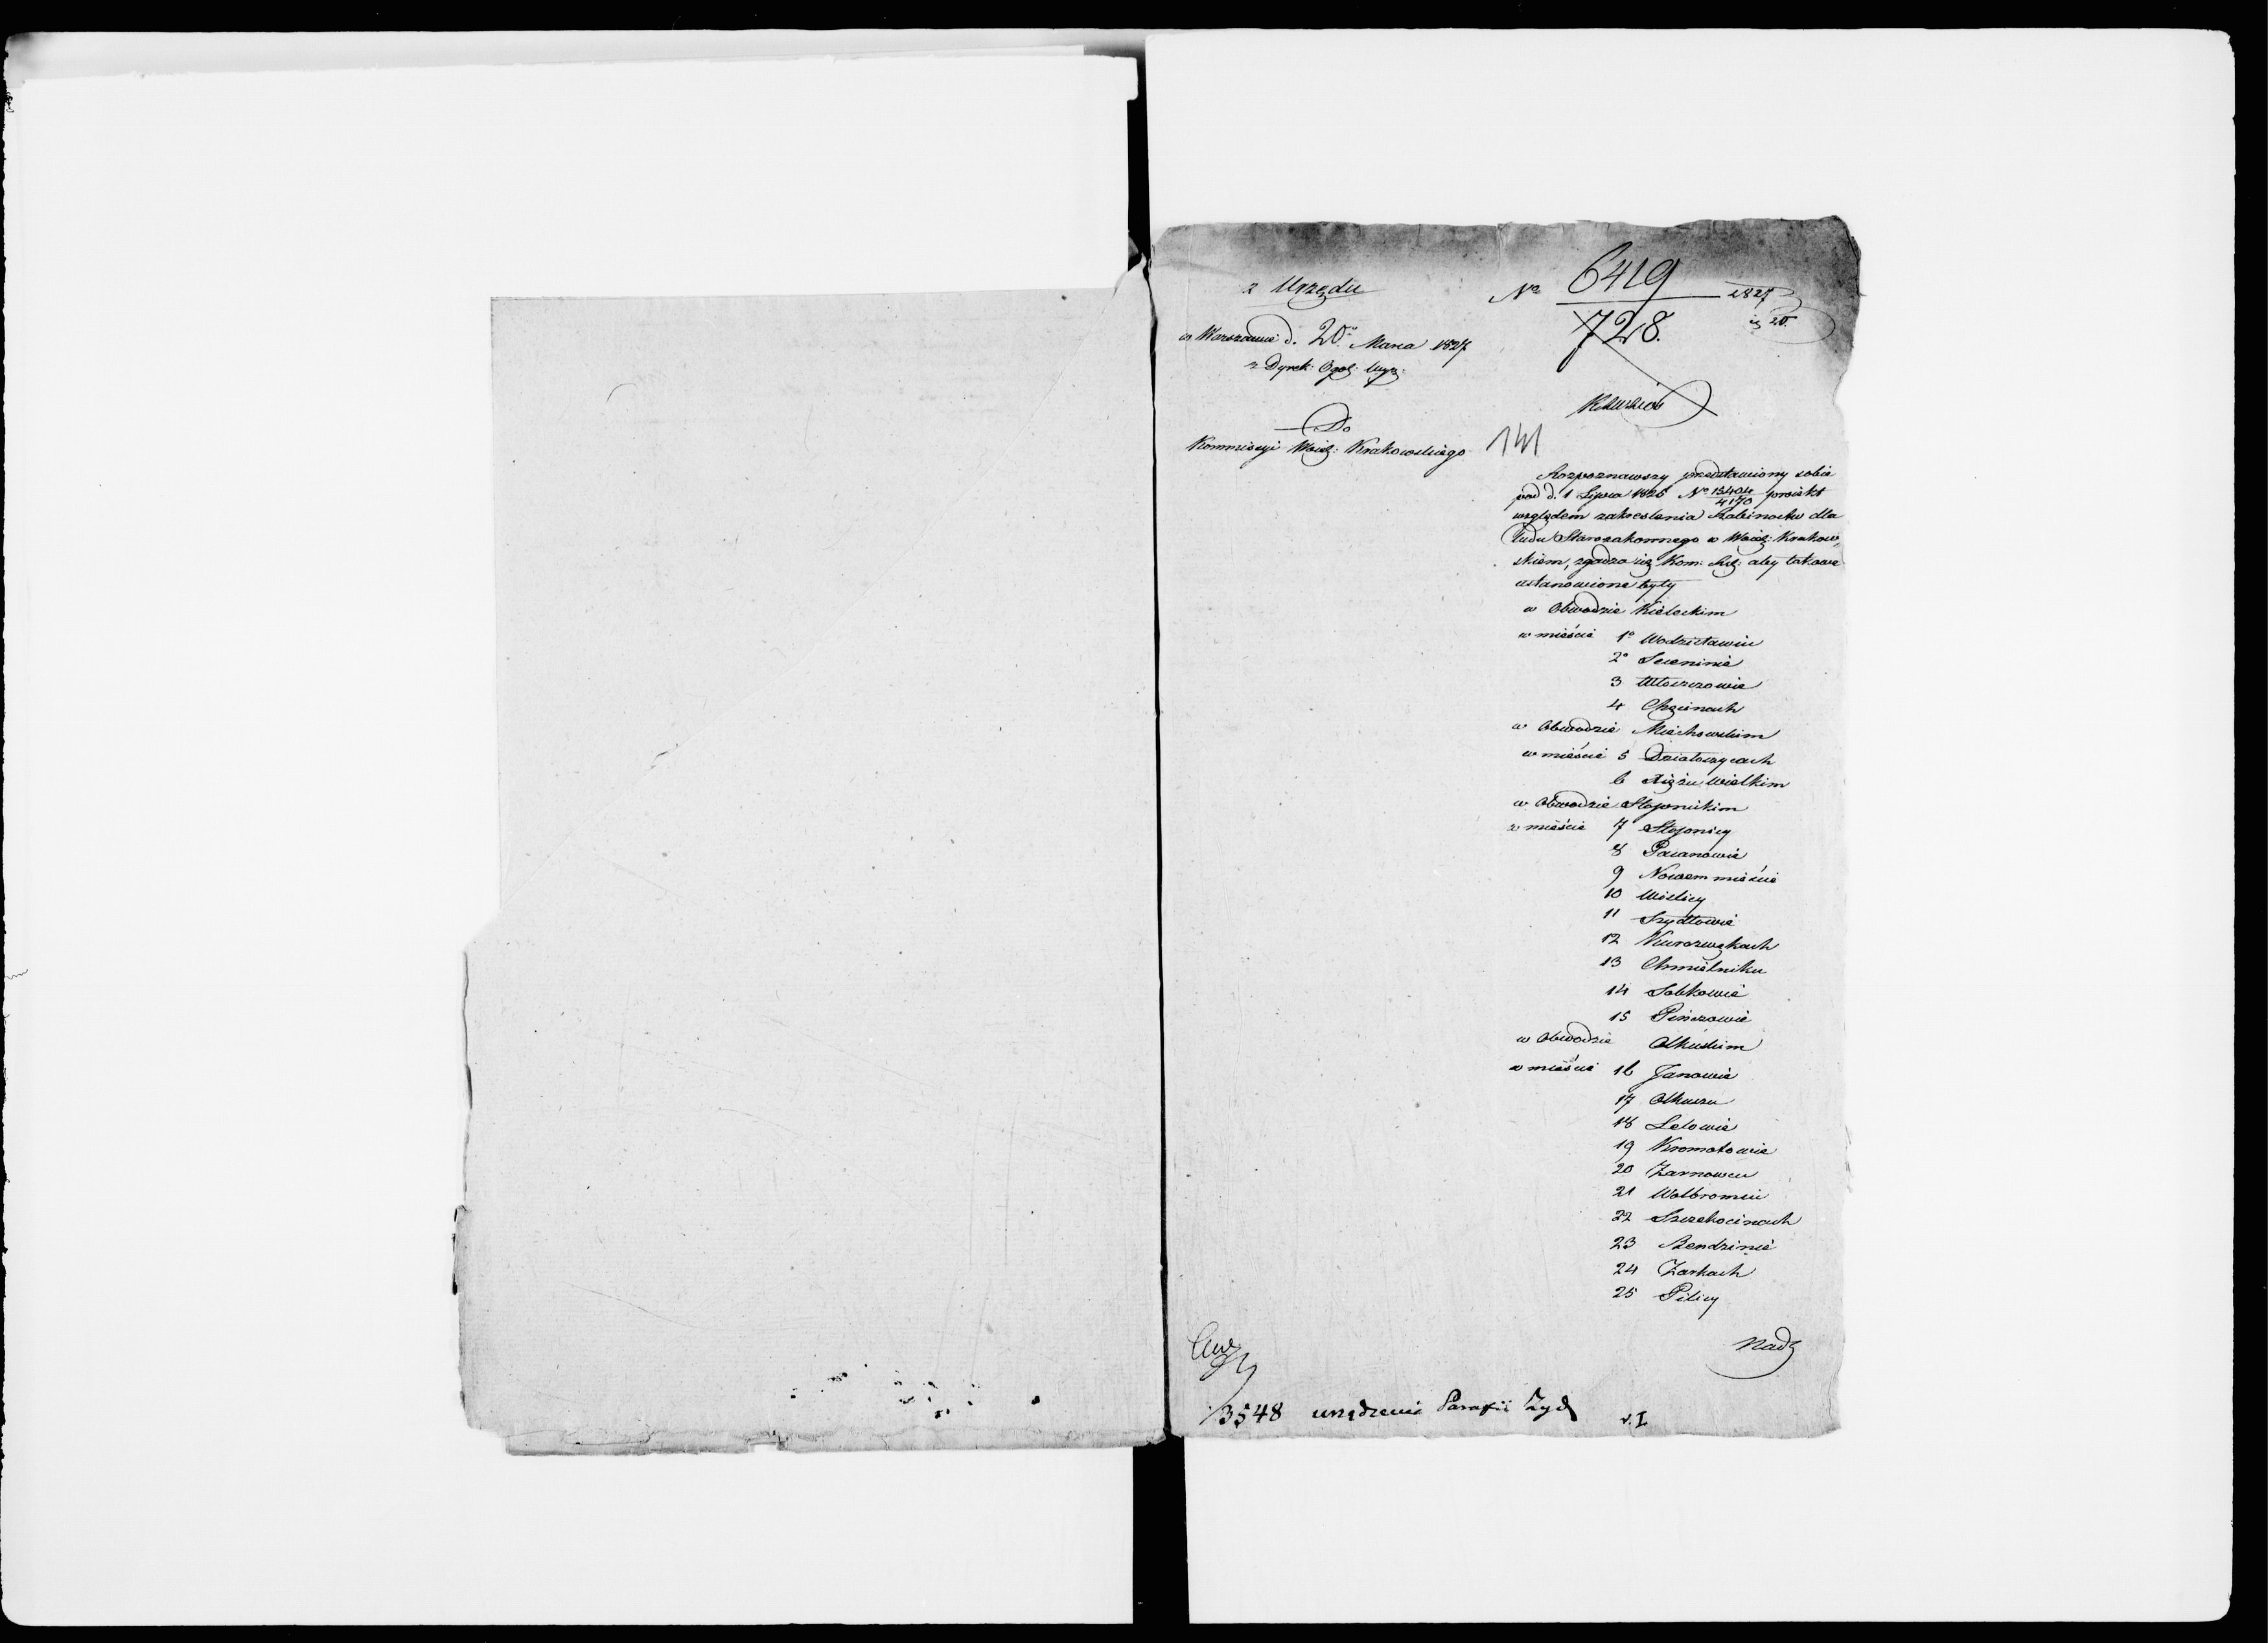 z Urzędu
w Warszawie d. 20 Marca 1827
z Dyrek: Ogol:
Do
Kommissyi Woiew: Krakowskiego
No 6419
728.
1827
141
Rozpoznawszy przedstawiony sobie
pod d. 1 Lipca 1825 No 15404/4170 proiekt
względem zakreslenia Rabinostw dla
Ludu Starozakonnego w Woiew: Krakow,
skiem, zgadza się Kom: Rząd: aby takowe
ustanowione były
w Obwodzie Kieleckim
w mieście 1o Wodzisławiu
2o Seceminie
3 Włoszczowie
4 Chęcinach
w Obwodzie Miechowskim
w mieście 5 Działoszycach
6 Xiążu wielkim
w Obwodzie Stopnickim
w mieście 7 Stopnicy
8 Pacanowie
9 Nowem mieście
10 Wiślicy
11 Szydłowie
12 Kurozwękach
13 Chmielniku
14 Sobkowie
15 Pińczowie
w Obwodzie Olkuskim
w mieście 16 Janowie
17 Olkuszu
18 Lelowie
19 Kromołowie
20 Żarnowcu
21 Wolbromiu
22 Szczekocinach
23 Bendzinie
24 Żarkach
25 Pilicy
Nadz
13548 urządzenie Parafii Żyd v. I